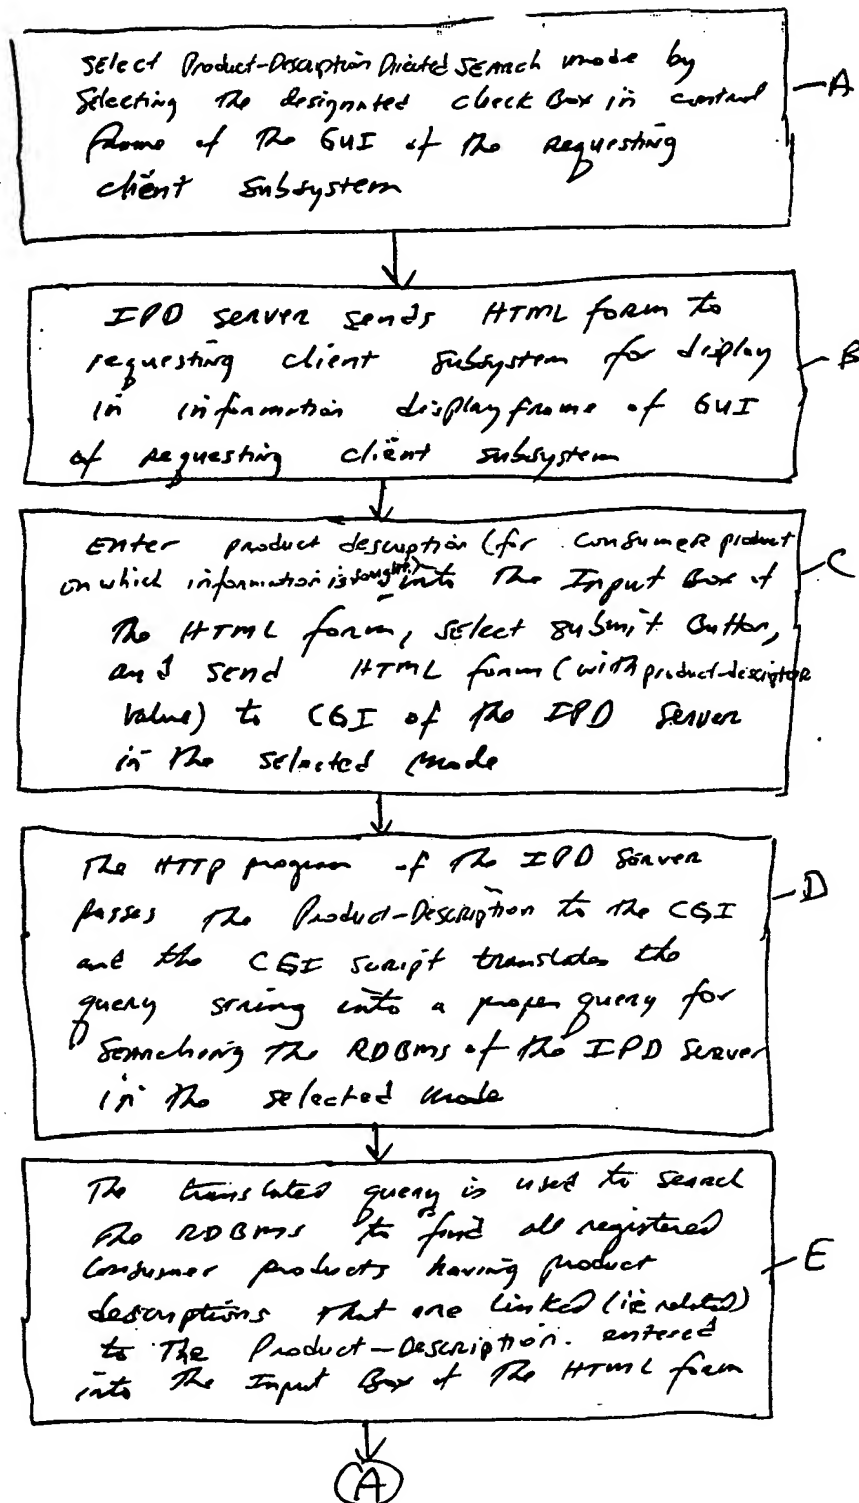 Select Product-Description Directed Search mode by
Selecting the designated check Box in control
frame of the GUI of the requesting
client subsystem
A
IPD Server sends HTML form to
requesting client subsystem for display
in information display frame of GUI
of requesting client subsystem
B
Enter product description (for consumer product
on which information is sought) into The Input Box of
the HTML form, select submit Button,
and send HTML form (with product-descriptor
value) to CGI of the IPD Server
in the selected mode
C
The HTTP program of the IPD Server
passes the Product-Description to the CGI
and the CGI script translates the
query string into a proper query for
Searching the RDBMS of the IPD Server
in the selected mode
D
The translated query is used to search
The RDBMS to find all registered
Consumer products having product
descriptions that are linked (ie related)
to The Product-Description. entered
into The Input Box of The HTML form
E
A